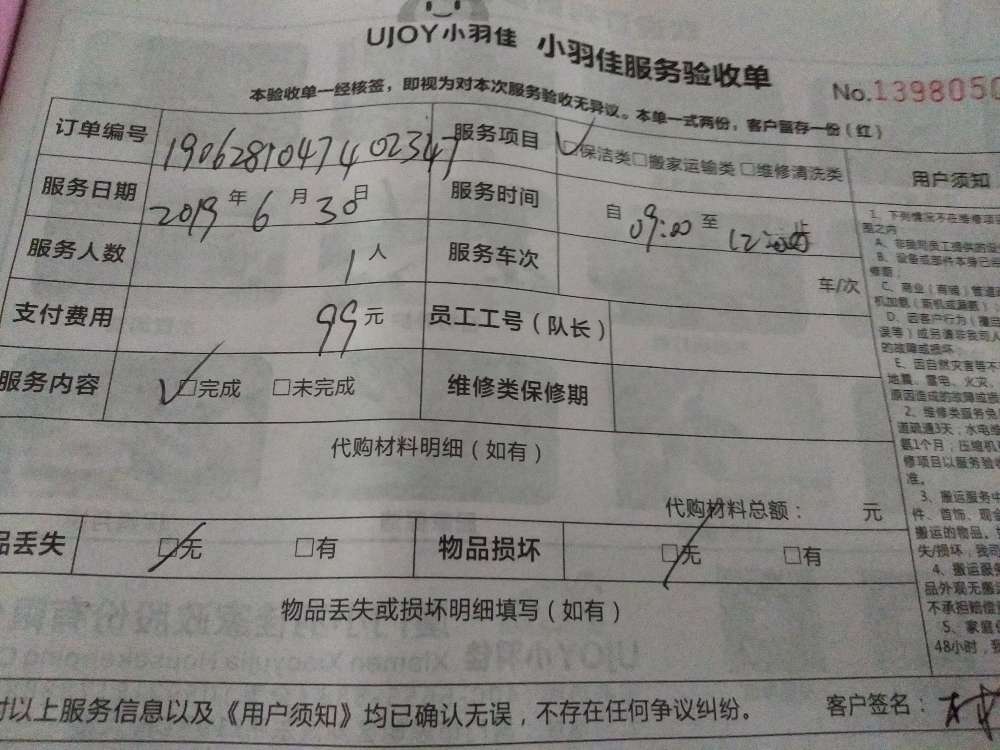 UJOY小羽佳 小羽佳服务验收单
No.1398050
本验收单一经核签，即视为对本次服务验收无异议。本单一式两份，客户留存一份（红）
订单编号 1906281047402347 服务项目 □保洁类□搬家运输类□维修清洗类 用户须知
服务日期 2019年6月30日 服务时间 自09:00至
服务人数 1人 服务车次 车/次
支付费用 99元 员工工号（队长）
服务内容 □完成 □未完成 维修类保修期
代购材料明细（如有）
代购材料总额： 元
品丢失 □无 □有 物品损坏 □无 □有
物品丢失或损坏明细填写（如有）
对以上服务信息以及《用户须知》均已确认无误，不存在任何争议纠纷。 客户签名：
1、下列情况不在维修项
围之内
A、非我司员工提供的
B、设备或部件本身已
修器
C、商业（商铺）管道
机加氨（新机或漏氨）
D、因客户行为
误等）或另请非我司人
的故障或损坏
E、因自然灾害等不
地震、雷电、火灾、
原因造成的故障或
2、维修类服务免
道疏通3天，水电维
氨1个月；压缩机
修项目以服务验收
准。
3、搬运服务中
件、首饰、现金
搬运的物品，
失/损坏，我司
4、搬运服务
品外观无搬
不承担赔偿
5、家庭
48小时，我